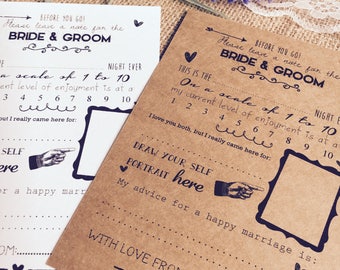 BEFORE YOU GO!
Please leave a note for the
BRIDE & GROOM
NIGHT EVER
On a scale of 1 to 10
my current level of enjoyment is at a
1 2 3 4 5 6 7 8 9 10
I love you both, but I really came here for:
DRAW YOUR SELF
PORTRAIT here
My advice for a happy marriage is:
FROM:
BEFORE YOU GO!
Please leave a note for the
BRIDE & GROOM
THIS IS THE
NIGHT EVER
On a scale of 1 to 10
my current level of enjoyment is at a
1 2 3 4 5 6 7 8 9 10
I love you both, but I really came here for:
DRAW YOUR SELF
PORTRAIT here
My advice for a happy marriage is:
WITH LOVE FROM